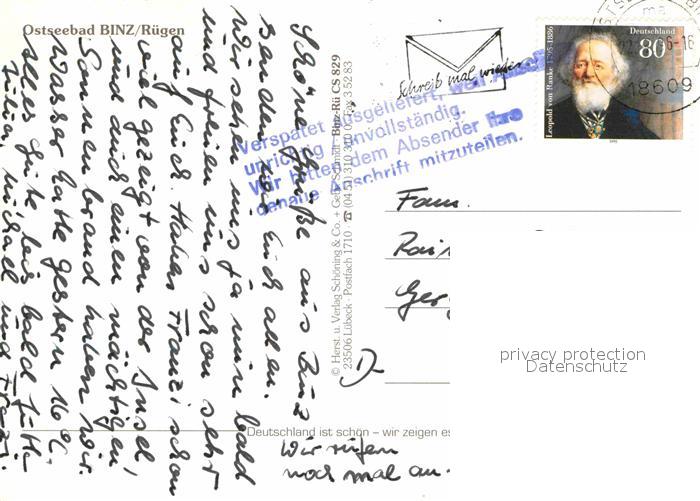 Ostseebad BINZ/Rügen
Schöne Grüße aus Binz
senden wir Euch allen.
Wir sehen uns ja nun bald
und freuen uns schon sehr
auf Euch. Haben Franzi schon
viel gezeigt von der Insel,
und auch einen mächtigen
Sonnenbrand haben wir.
Wasser hatte gestern 16°C.
Alles Gute bis bald Jutta
Michael und Franzi.
Wir rufen
noch mal an.
© Herst. u. Verlag Schöning & Co. + Gebr. Schmidt · Binz-Rü CS 829
23506 Lübeck · Postfach 1710 · ☎ (04 51) 310 310
Deutschland ist schön – wir zeigen es
Schreib mal wieder
Verspätet ausgeliefert, weil
unrichtig / unvollständig.
Wir bitten dem Absender Ihre
genaue Anschrift mitzuteilen.
Deutschland
80
Leopold von Ranke 1795-1886
18609
Fam.
Rai
Ger
D-
privacy protection
Datenschutz